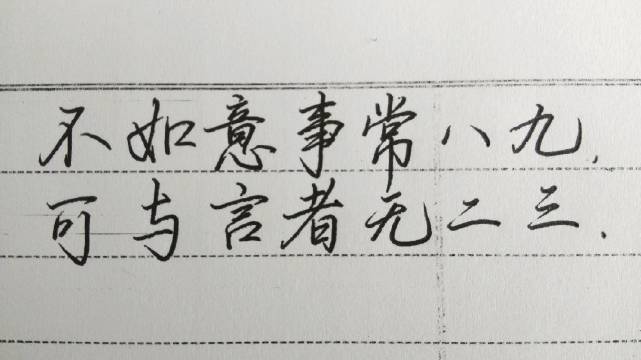 不如意事常八九,
可与言者无二三.